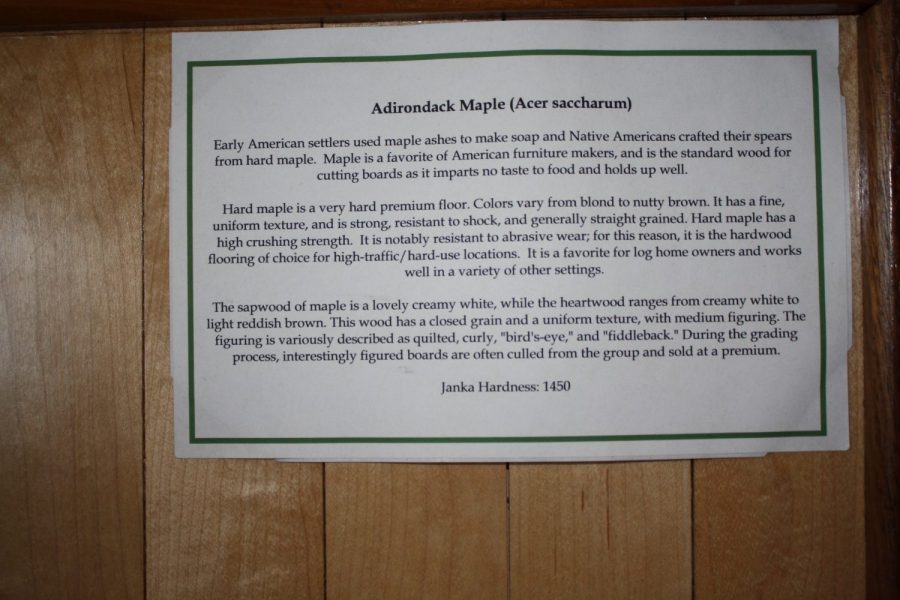 Adirondack Maple (Acer saccharum)
Early American settlers used maple ashes to make soap and Native Americans crafted their spears
from hard maple.  Maple is a favorite of American furniture makers, and is the standard wood for
cutting boards as it imparts no taste to food and holds up well.
Hard maple is a very hard premium floor. Colors vary from blond to nutty brown. It has a fine,
uniform texture, and is strong, resistant to shock, and generally straight grained. Hard maple has a
high crushing strength.  It is notably resistant to abrasive wear; for this reason, it is the hardwood
flooring of choice for high-traffic/hard-use locations.  It is a favorite for log home owners and works
well in a variety of other settings.
The sapwood of maple is a lovely creamy white, while the heartwood ranges from creamy white to
light reddish brown. This wood has a closed grain and a uniform texture, with medium figuring. The
figuring is variously described as quilted, curly, "bird's-eye," and "fiddleback." During the grading
process, interestingly figured boards are often culled from the group and sold at a premium.
Janka Hardness: 1450